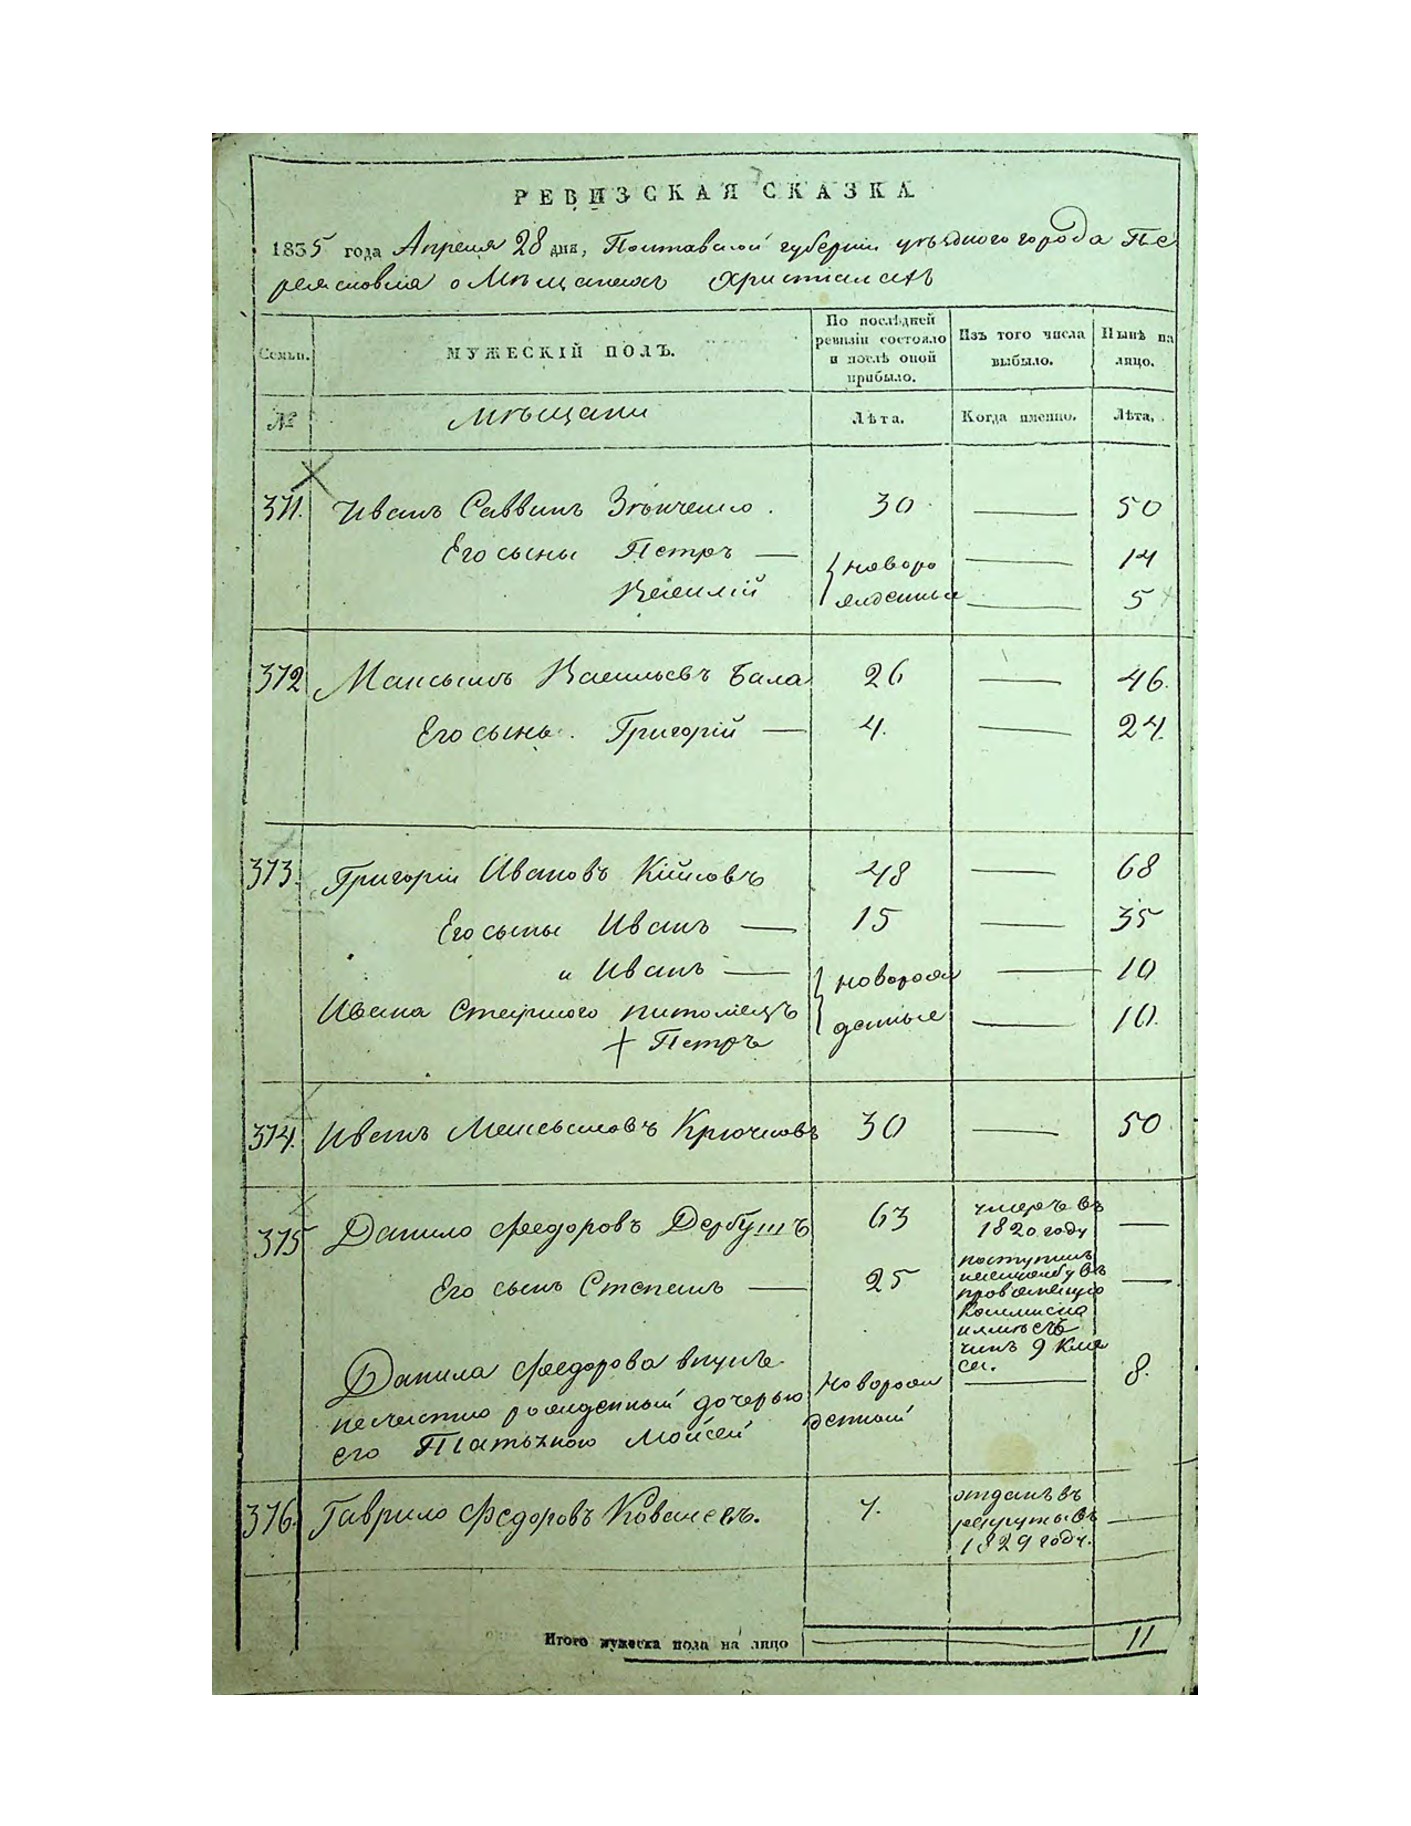 РЕВИЗСКАЯ СКАЗКА
1835 года Апреля 28 дня, Полтавской губернии уѣзднаго города Пе
реяславля о Мѣщанахъ христіанахъ
Семьи. МУЖЕСКІЙ ПОЛЪ. По послѣдней ревизіи состояло и послѣ оной прибыло. Изъ того числа выбыло. Нынѣ на лицо.
№ Мѣщани Лѣта. Когда именно. Лѣта.
371. Иванъ Саввинъ Зѣнченко. 30 — 50
Его сыны Петръ — новоро — 14
Василій жденныи — 5
372 Максымъ Васильевъ Бала 26 — 46.
Его сынъ. Григорій — 4. — 24.
373. Григорій Ивановъ Кійковъ 48 — 68
Его сыны Иванъ — 15 — 35
и Иванъ — новорож — 10
Ивана Старшого питомецъ денные — 10.
+ Петръ
374. Иванъ Максымовъ Крючковъ 30 — 50
375 Данило Федоровъ Дербушъ 63 умеръ въ 1820 году —
Его сынъ Степанъ — 25 поступилъ на службу въ провіянскую Коммисію чинъ 9 Клас —
Данила Федорова внукъ новорож — 8.
рожденный дочерью денный
его Татьяною Мойсей
376. Гаврило Федоровъ Ковалевъ. 7. отданъ въ рекруты въ 1829 году. —
Итого мужеска пола на лицо 11